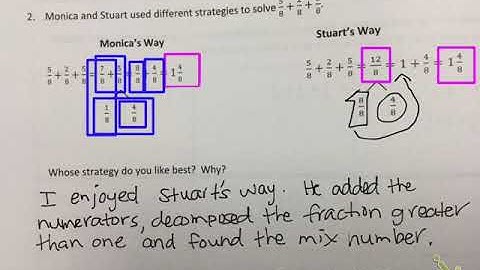 2. Monica and Stuart used different strategies to solve 5/8 + 2/8 + 5/8.
Monica's Way
Stuart's Way
5/8 + 2/8 + 5/8 = 7/8 + 5/8 = 8/8 + 4/8 = 1 4/8
1/8 4/8
5/8 + 2/8 + 5/8 = 12/8 = 1 + 4/8 = 1 4/8
8/8 4/8
Whose strategy do you like best? Why?
I enjoyed Stuart's way. He added the
numerators, decomposed the fraction greater
than one and found the mix number.